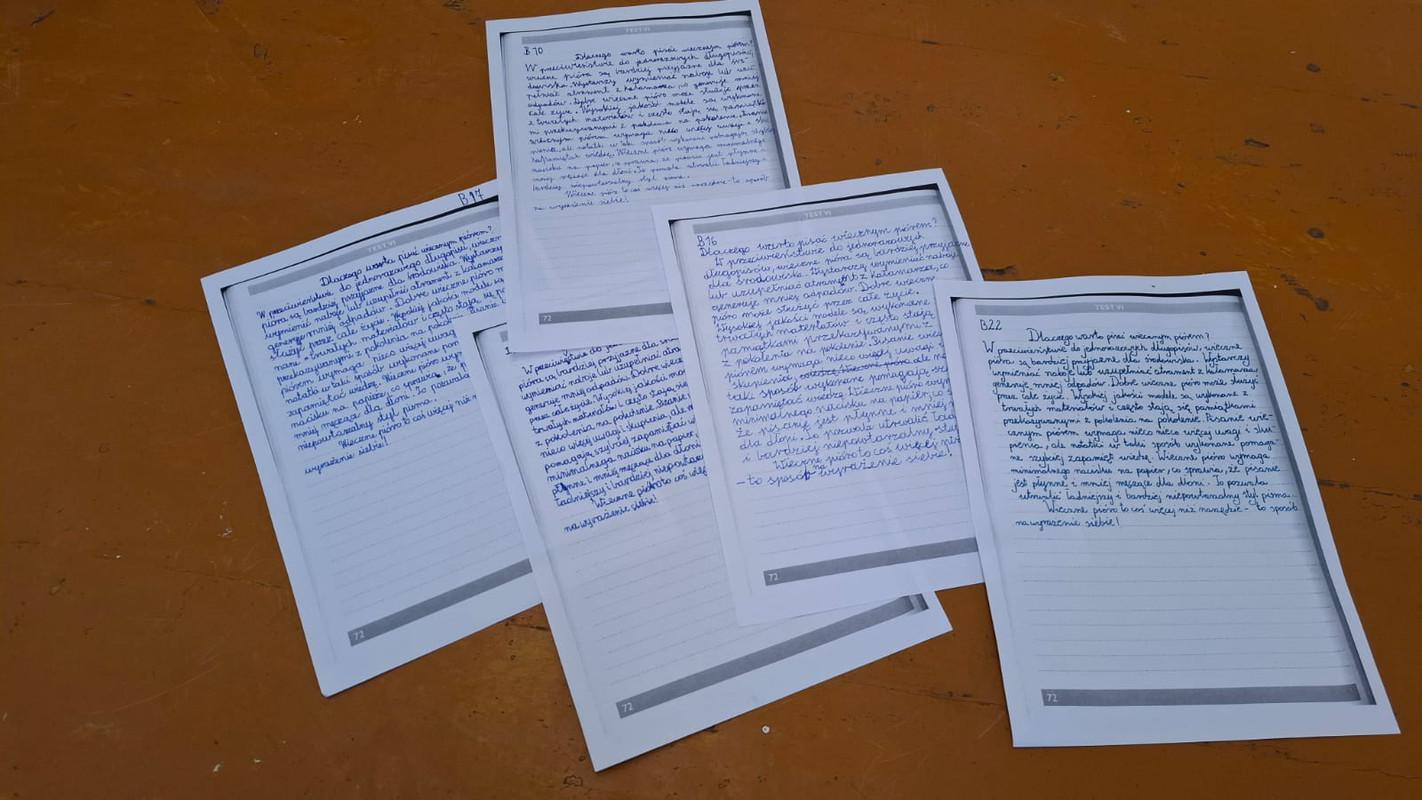 TEST VI
B10
Dlaczego warto pisać wiecznym piórem?
W przeciwieństwie do jednorazowych długopisów,
wieczne pióra są bardziej przyjazne dla śro-
dowiska. Wystarczy wymieniać naboje lub uzu-
pełniać atrament z kałamarza, co generuje mniej
odpadów. Dobre wieczne pióro może służyć przez
całe życie. Wysokiej jakości modele są wykonane
z trwałych materiałów i często stają się pamiątka-
mi przekazywanymi z pokolenia na pokolenie. Pisanie
wiecznym piórem wymaga nieco więcej uwagi i sku-
pienia, ale notatki w taki sposób wykonane pomagają szybciej
zapamiętać wiedzę. Wieczne pióro wymaga minimalnego
nacisku na papier, co sprawia, że pisanie jest płynne i
mniej męczące dla dłoni. To pozwala utrwalić ładniejszy i
bardziej niepowtarzalny styl pisma.
Wieczne pióro to coś więcej niż narzędzie - to sposób
na wyrażenie siebie!
72
B17
TEST VI
Dlaczego warto pisać wiecznym piórem?
W przeciwieństwie do jednorazowego długopisu, wieczne
pióra są bardziej przyjazne dla środowiska. Wystarczy
wymienić naboje lub uzupełnić atrament z kałamarza
generuje mniej odpadów. Dobre wieczne pióro m
służyć przez całe życie. Wysokiej jakości modele są
nane z trwałych materiałów i często stają się pa
przekazywanymi z pokolenia na pokol Pisanie
piórem wymaga nieco więcej uwagi
notatki w taki sposób wykonane pom
zapamiętać wiedzę. Wieczne pióro wym
nacisku na papier, co sprawia, że p
mniej męczące dla dłoni. To pozwala
niepowtarzalny styl pisma.
Wieczne pióro to coś więcej niż n
wyrażenie siebie!
72
W przeciwieństwie do je
pióra są bardziej przyjazne dla śro
wymieniać naboje lub uzupełniać atra
generuje mniej odpadów. Dobre wiecz
przez całe życie. Wysokiej jakości mo
trwałych materiałów i często stają się
z pokolenia na pokolenie. Pisanie
nieco więcej uwagi i skupienia, ale n
pomagają szybciej zapamiętać w
minimalnego nacisku na papier
płynne i mniej męczące dla dłoni
ładniejszy i bardziej niepowtarz
Wieczne pióro to coś więc
na wyrażenie siebie!
72
TEST VI
B16
Dlaczego warto pisać wiecznym piórem?
W przeciwieństwie do jednorazowych
długopisów, wieczne pióra są bardziej przyjazne
dla środowiska. Wystarczy wymieniać naboje
lub uzupełniać atrament z kałamarza, co
generuje mniej odpadów. Dobre wieczne
pióro może służyć przez całe życie.
Wysokiej jakości modele są wykonane z
trwałych materiałów i często stają
pamiątkami przekazywanymi z
z pokolenia na pokolenie. Pisanie wiecz
piórem wymaga nieco więcej uwagi i
skupienia, ale no
taki sposób wykonane pomagają sz
zapamiętać wiedzę. Wieczne pióro wym
minimalnego nacisku na papier, co s
że pisanie jest płynne i mniej m
dla dłoni. To pozwala utrwalić ład
i bardziej niepowtarzalny styl
Wieczne pióro to coś więcej ni
- to sposób na wyrażenie siebie!
72
TEST VI
B22
Dlaczego warto pisać wiecznym piórem?
W przeciwieństwie do jednorazowych długopisów, wieczne
pióra są bardziej przyjazne dla środowiska. Wystarczy
wymieniać naboje lub uzupełniać atrament z kałamarza
generuje mniej odpadów. Dobre wieczne pióro może służyć
przez całe życie. Wysokiej jakości modele są wykonane z
trwałych materiałów i często stają się pamiątkami
przekazywanymi z pokolenia na pokolenie. Pisanie wie-
cznym piórem wymaga nieco nieco więcej uwagi i sku-
pienia, ale notatki w taki sposób wykonane pomaga-
ne szybciej zapamięt wiedzę. Wieczne pióro wymaga
minimalnego nacisku na papier, co sprawia, że pisanie
jest płynne i mniej męczące dla dłoni. To pozwala
utrwalić ładniejszy i bardziej niepowtarzalny styl pisma.
Wieczne pióro to coś więcej niż narzędzie - to sposób
na wyrażenie siebie!
72